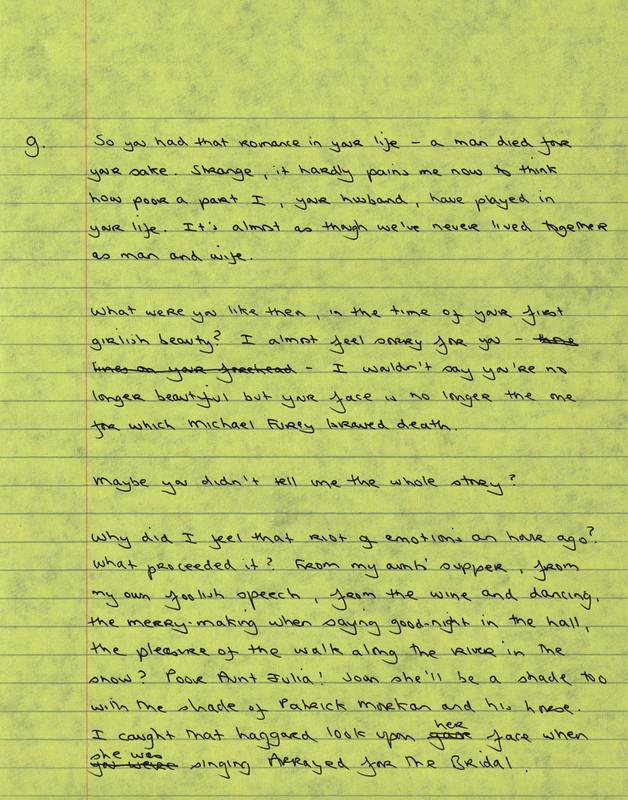 9.
So you had that romance in your life – a man died for
your sake. Strange, it hardly pains me now to think
how poor a part I, your husband, have played in
your life. It's almost as though we've never lived together
as man and wife.
What were you like then, in the time of your first
girlish beauty? I almost feel sorry for you – those
lines on your forehead – I wouldn't say you're no
longer beautiful but your face is no longer the one
for which Michael Furey braved death.
Maybe you didn't tell me the whole story?
Why did I feel that riot of emotions an hour ago?
What proceeded it? From my aunts' supper, from
my own foolish speech, from the wine and dancing,
the merry-making when saying good-night in the hall,
the pleasure of the walk along the river in the
snow? Poor Aunt Julia! Soon she'll be a shade too
with the shade of Patrick Morkan and his horse.
her
I caught that haggard look upon face when
she was
you were singing Arrayed for the Bridal.